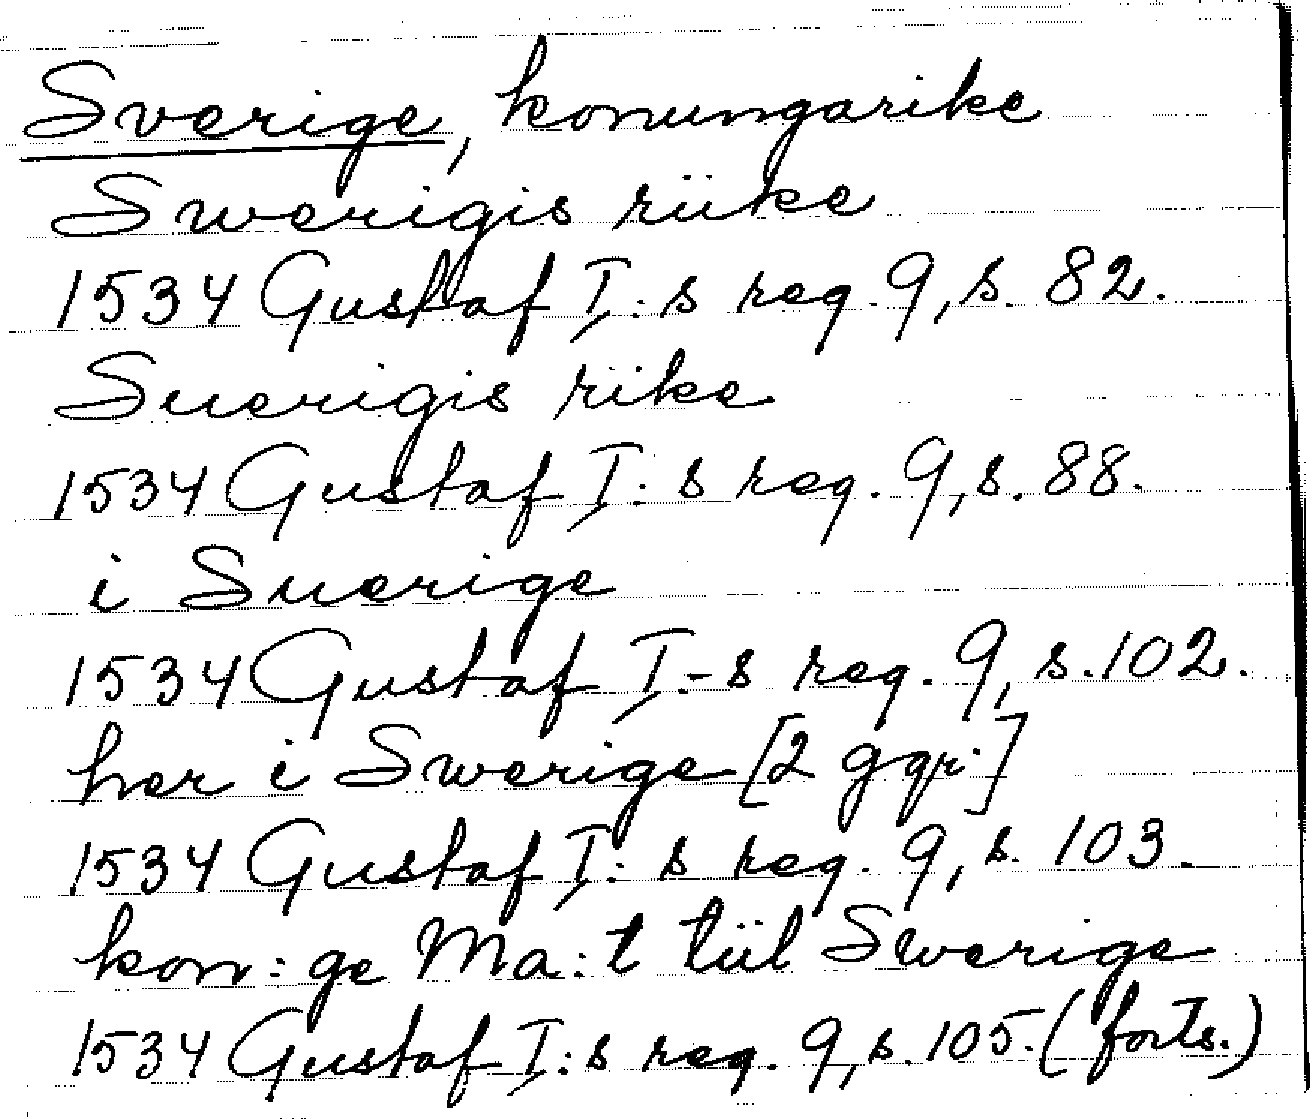 Sverige, konungarike
Swerigis riike
1534 Gustaf I:s reg. 9, s. 82.
Suerigis rike
1534 Gustaf I:s reg. 9, s. 88.
i Suerige
1534 Gustaf I:s reg. 9, s. 102.
her i Swerige [2 ggr]
1534 Gustaf I:s reg. 9, s. 103.
kon:ge Ma:t tiil Swerige
1534 Gustaf I:s reg. 9, s. 105. (forts.)